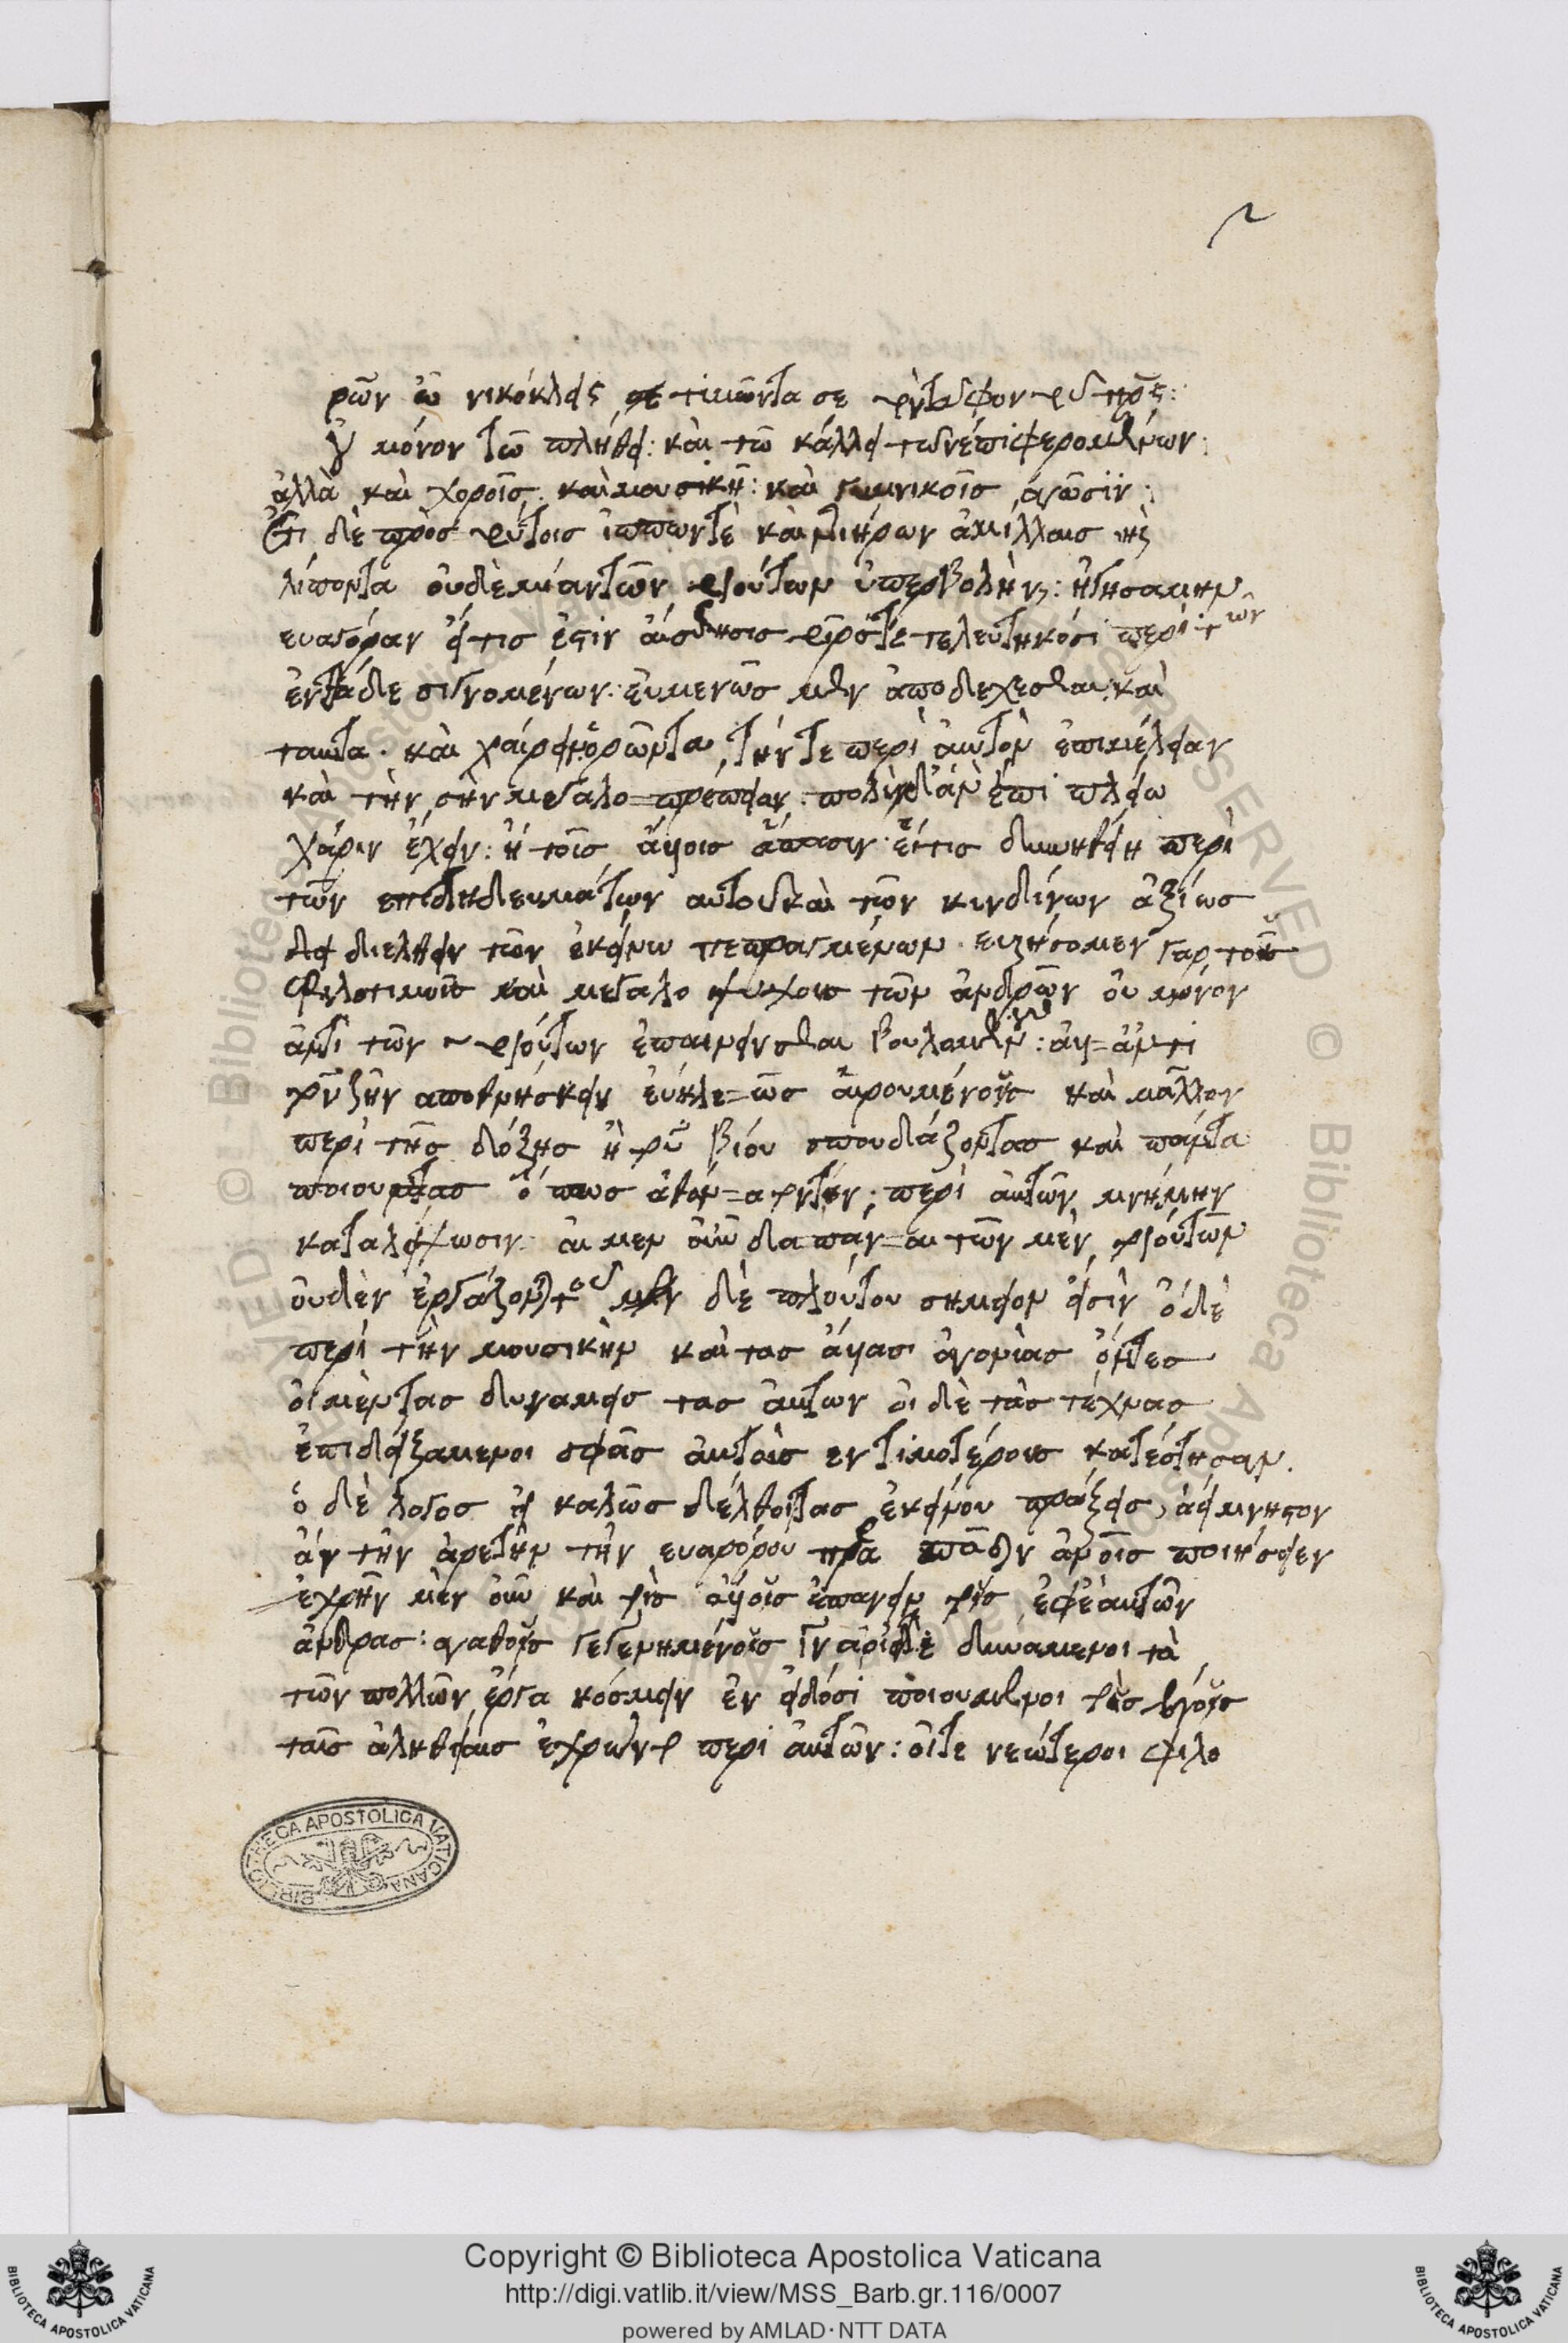 ρῶν ὦ νικόκλεις τιμῶντα σε τὸν τάφον τοῦ πρς:
οὐ μόνον τῶ πλήθει: καὶ τῶ κάλλει τῶν ἐπιφερομένων:
ἀλλὰ καὶ χοροῖς. καὶ μουσικῆ: καὶ γυμνικοῖς ἀγῶσιν:
Ἔτι δὲ πρὸς τούτοις ἵππων τὲ καὶ τριήρων ἁμίλλαις
λίποντα οὐδεμίαν τῶν τοιούτων ὑπερβολὴν: ἡγησάμην
ευαγόραν εἴ τις ἐστὶν αἴσθησις τοῖς τετελευτηκόσι περὶ τῶν
ἐνθάδε γιγνομένων: εὐμενῶς μὲν ἀποδεχεσθαι καὶ
ταυτα. καὶ χαίρειν ὁρῶντα τήν τε περὶ αὐτὸν ἐπιμέλειαν
καὶ τὴν σὴν μεγαλο=πρέπειαν. πολὺ δ' ἂν ἔτι πλείω
χάριν ἔχειν: ἢ τοῖς ἄλλοις ἅπασιν: εἴ τις δυνηθείη περὶ
τῶν επιτηδευμάτων αὐτοῦ καὶ τῶν κινδύνων ἀξίως
διελθεῖν τῶν ἐκείνω πεπραγμένων. ευρήσομεν γαρ τοὺς
φιλοτιμους καὶ μεγαλο ψυχους τῶν ἀνδρῶν οὐ μόνον
ἀντὶ τῶν τοιούτων ἐπαινεῖσθαι βουλομένους: ἀλλ=ἀντὶ
τοῦ ζῆν αποθνήσκειν εὐκλε=ῶς αἱρουμένους καὶ μᾶλλον
περὶ τῆς δόξης ἢ τοῦ βίου σπουδάζοντας καὶ πάντα
ποιουντας ὅπως ἀθάν=ατον τὴν: περὶ αὐτῶν μνήμην
καταλείψωσιν. αἱ μεν οὖν δαπάν=αι τῶν μὲν τοιούτων
οὐδὲν ἐργάζονται τοῦ δὲ πλούτου σημεῖον εἰσὶν ὁ δὲ
περὶ τὴν μουσικὴν καὶ τας ἄλλασ ἀγονίας ὄντες
οἱ μὲν τας δυναμεις τας αὐτων οἱ δὲ τὰς τέχνας
ἐπιδειξαμενοι σφᾶς αὐτοὺς εντιμοτέρους κατέστησαν.
ὁ δὲ λογος εἰ καλῶς διέλθοι τας ἐκείνου πράξεις, ἀείμνηστον
ἂν τὴν ἀρετὴν τὴν ευαγόρου παρα πᾶσιν ἀνοις ποιήσειεν
ἐχρῆν μὲν οὖν καὶ τοὺς ἄλλους ἐπαινεῖν τοὺς ἐφ' ἑαυτῶν
ἄνδρας: αγαθοὺς γεγενημένους ἵν' οἵ τε δυνάμενοι τὰ
τῶν πολλῶν ἔργα κόσμειν ἐν εἰδόσι ποιουμενοι τοὺς λόγους
ταῖς ἀληθείαις ἐχρῶντο περι αὐτῶν: οἵ τε νεώτεροι φιλο
BIBLIOTHECA APOSTOLICA VATICANA
Copyright © Biblioteca Apostolica Vaticana
http://digi.vatlib.it/view/MSS_Barb.gr.116/0007
powered by AMLAD · NTT DATA